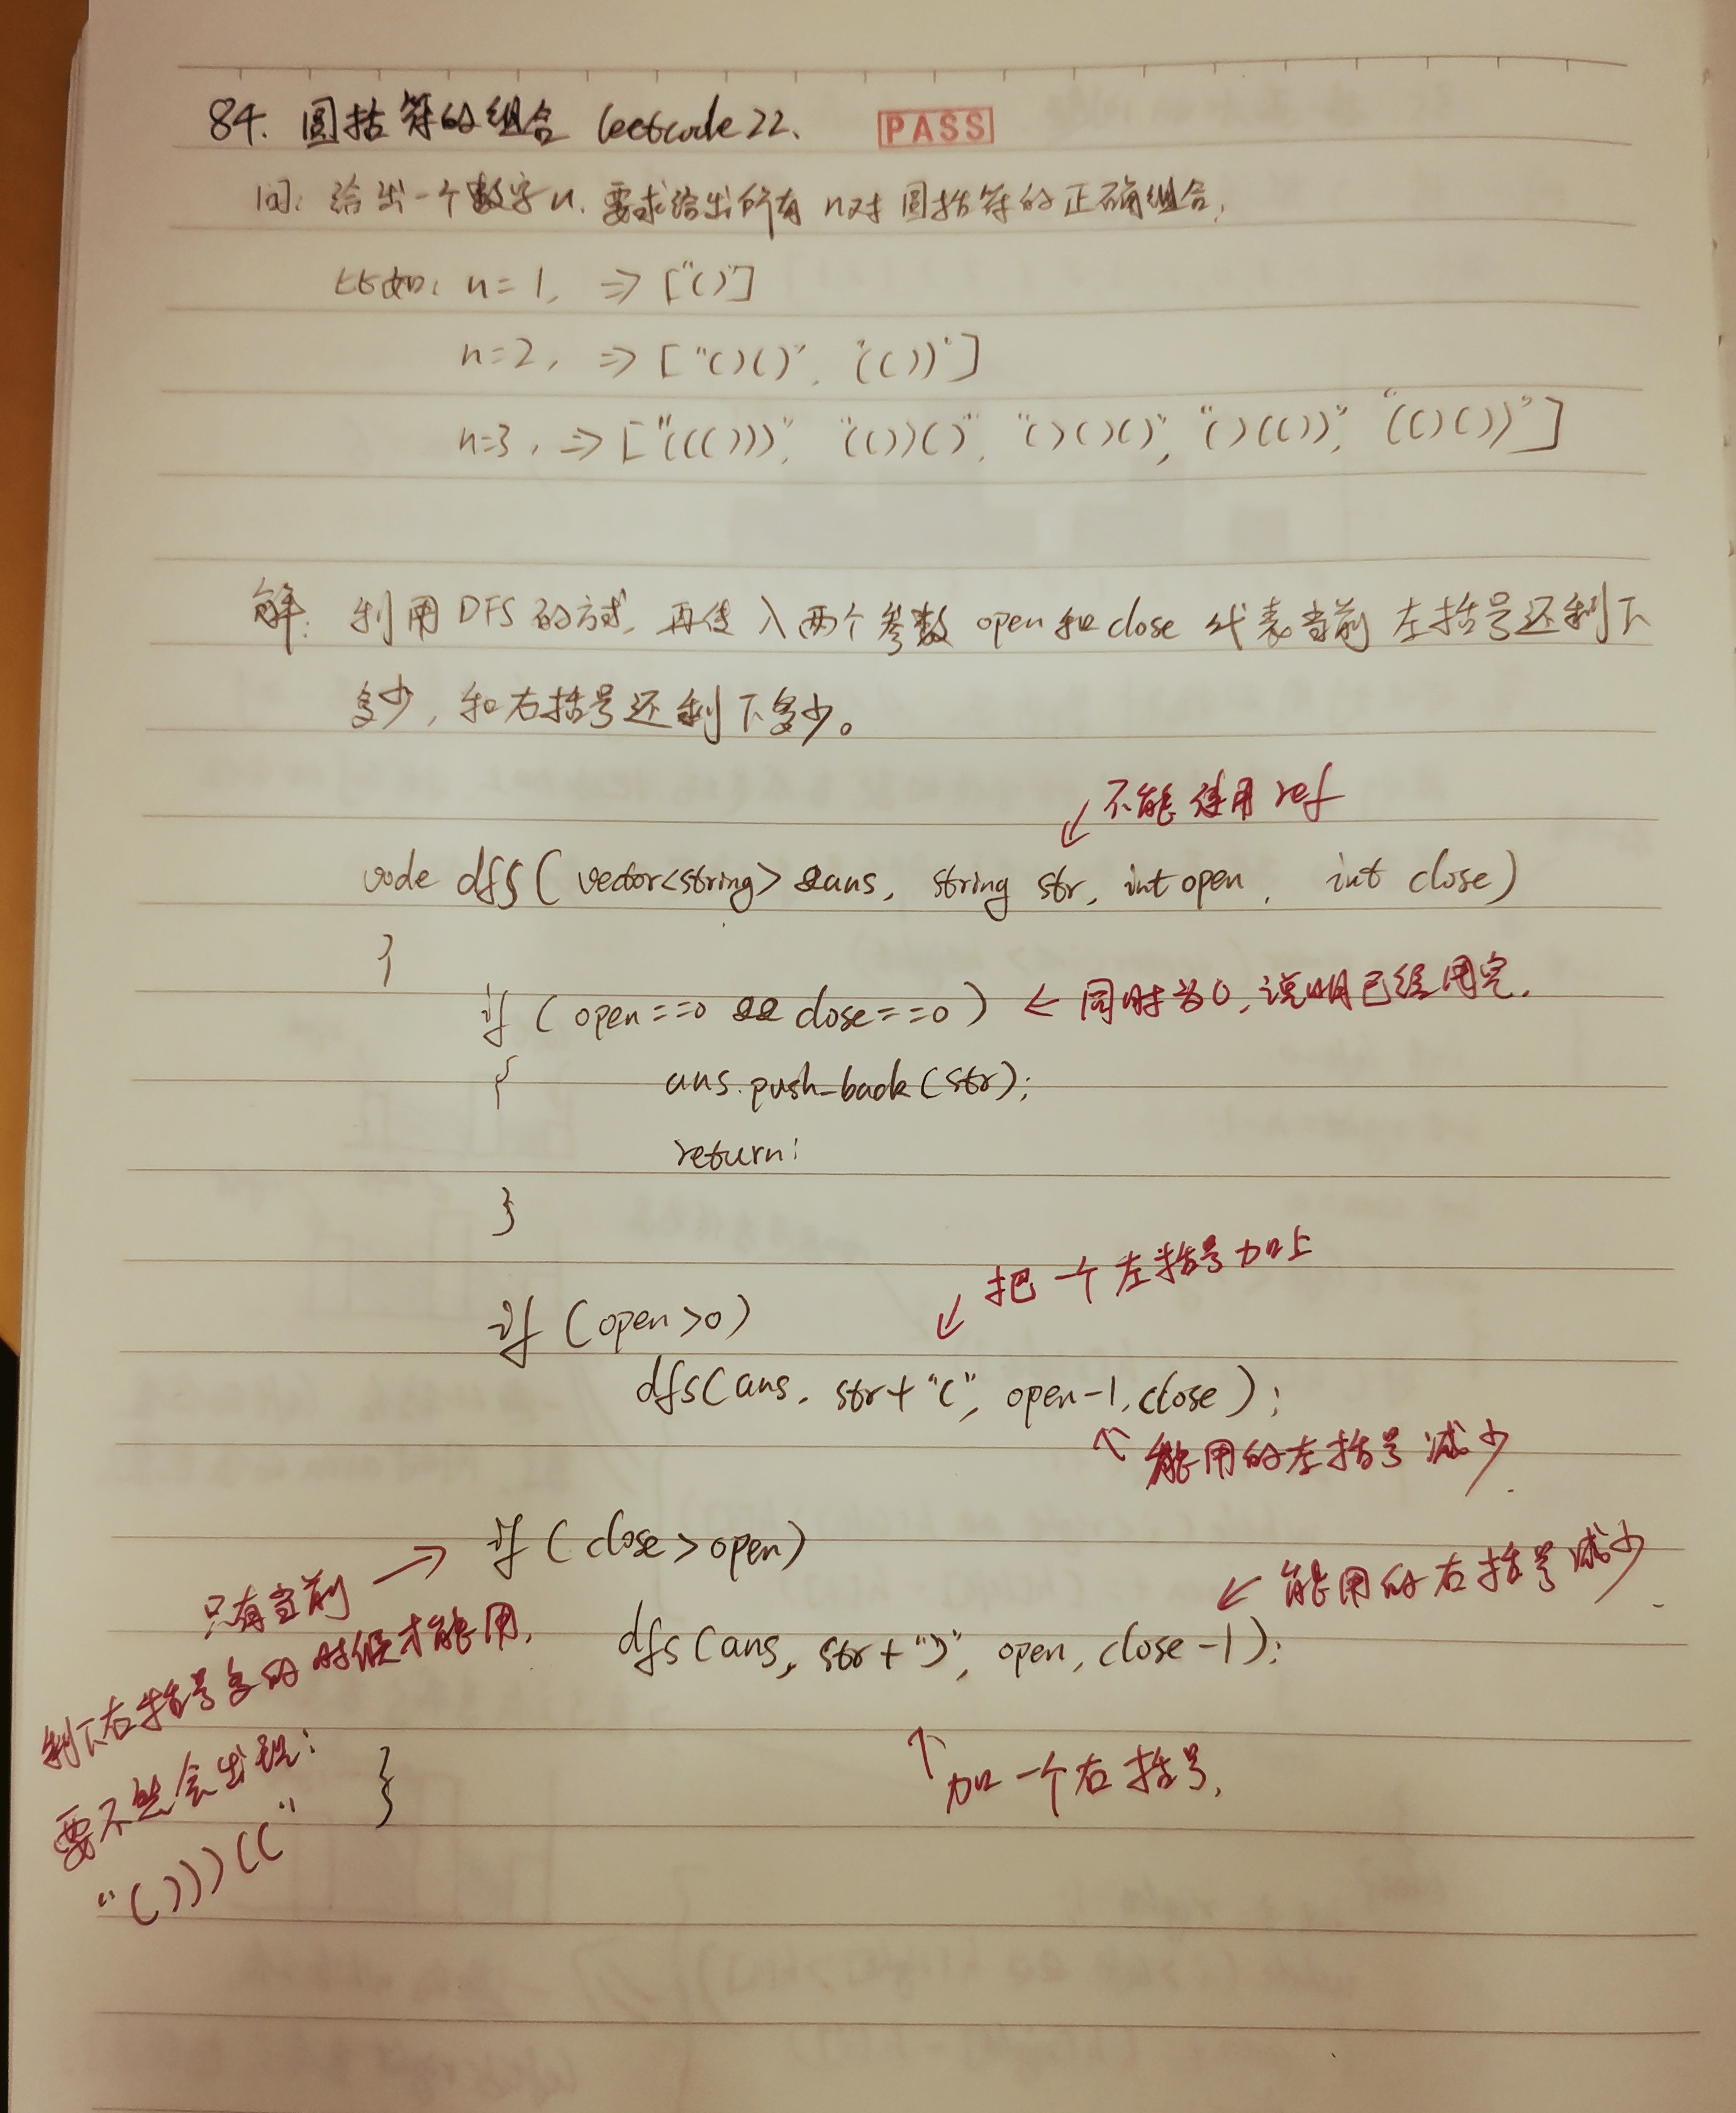 84. 圆括符的组合 leetcode 22. PASS
问: 给出一个数字n. 要求给出所有 n对 圆括符的正确组合.
比如: n=1, ⇒ ["()"]
n=2, ⇒ ["()()", "(())"]
n=3, ⇒ ["((()))", "(())()", "()()()", "()(())", "(()())"]
解: 利用 DFS 的方式, 再传入两个参数 open和close 代表当前 左括号还剩下
多少, 和右括号还剩下多少。
↙ 不能使用 ref
vode dfs( vector<string> &ans, string str, int open, int close)
{
if (open==0 && close==0) ← 同时为0, 说明已经用完.
{ ans.push_back(str);
return;
}
↙ 把一个左括号加上
if (open>0)
dfs(ans, str+"(", open-1, close);
↖ 能用的左括号减少.
if (close>open)
只有当前 →
↙ 能用的右括号减少.
剩下右括号多的时候才能用.
dfs(ans, str+")", open, close-1);
要不然会出现:
"()))(("
↑ 加一个右括号.
}